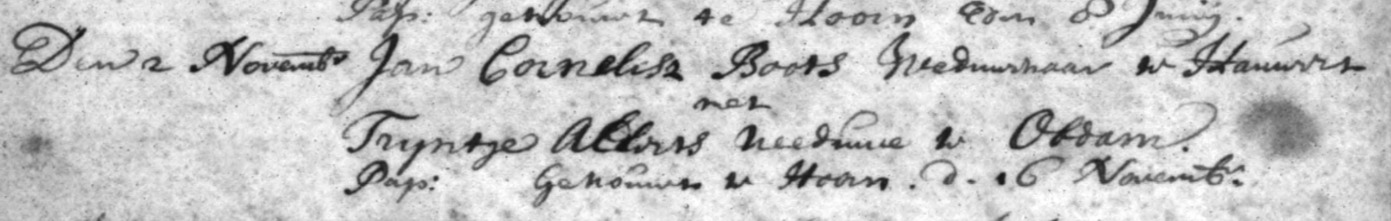 Pap: getrouwt te Hoorn den 8 Junij.
Den 2 Novembr Jan Cornelisz Boots Weduwnaar te Hauwert
met
Tryntje Alberts weeduwe te Obdam.
Pap: Getrouwt te Hoorn. d. 16 Novembr.